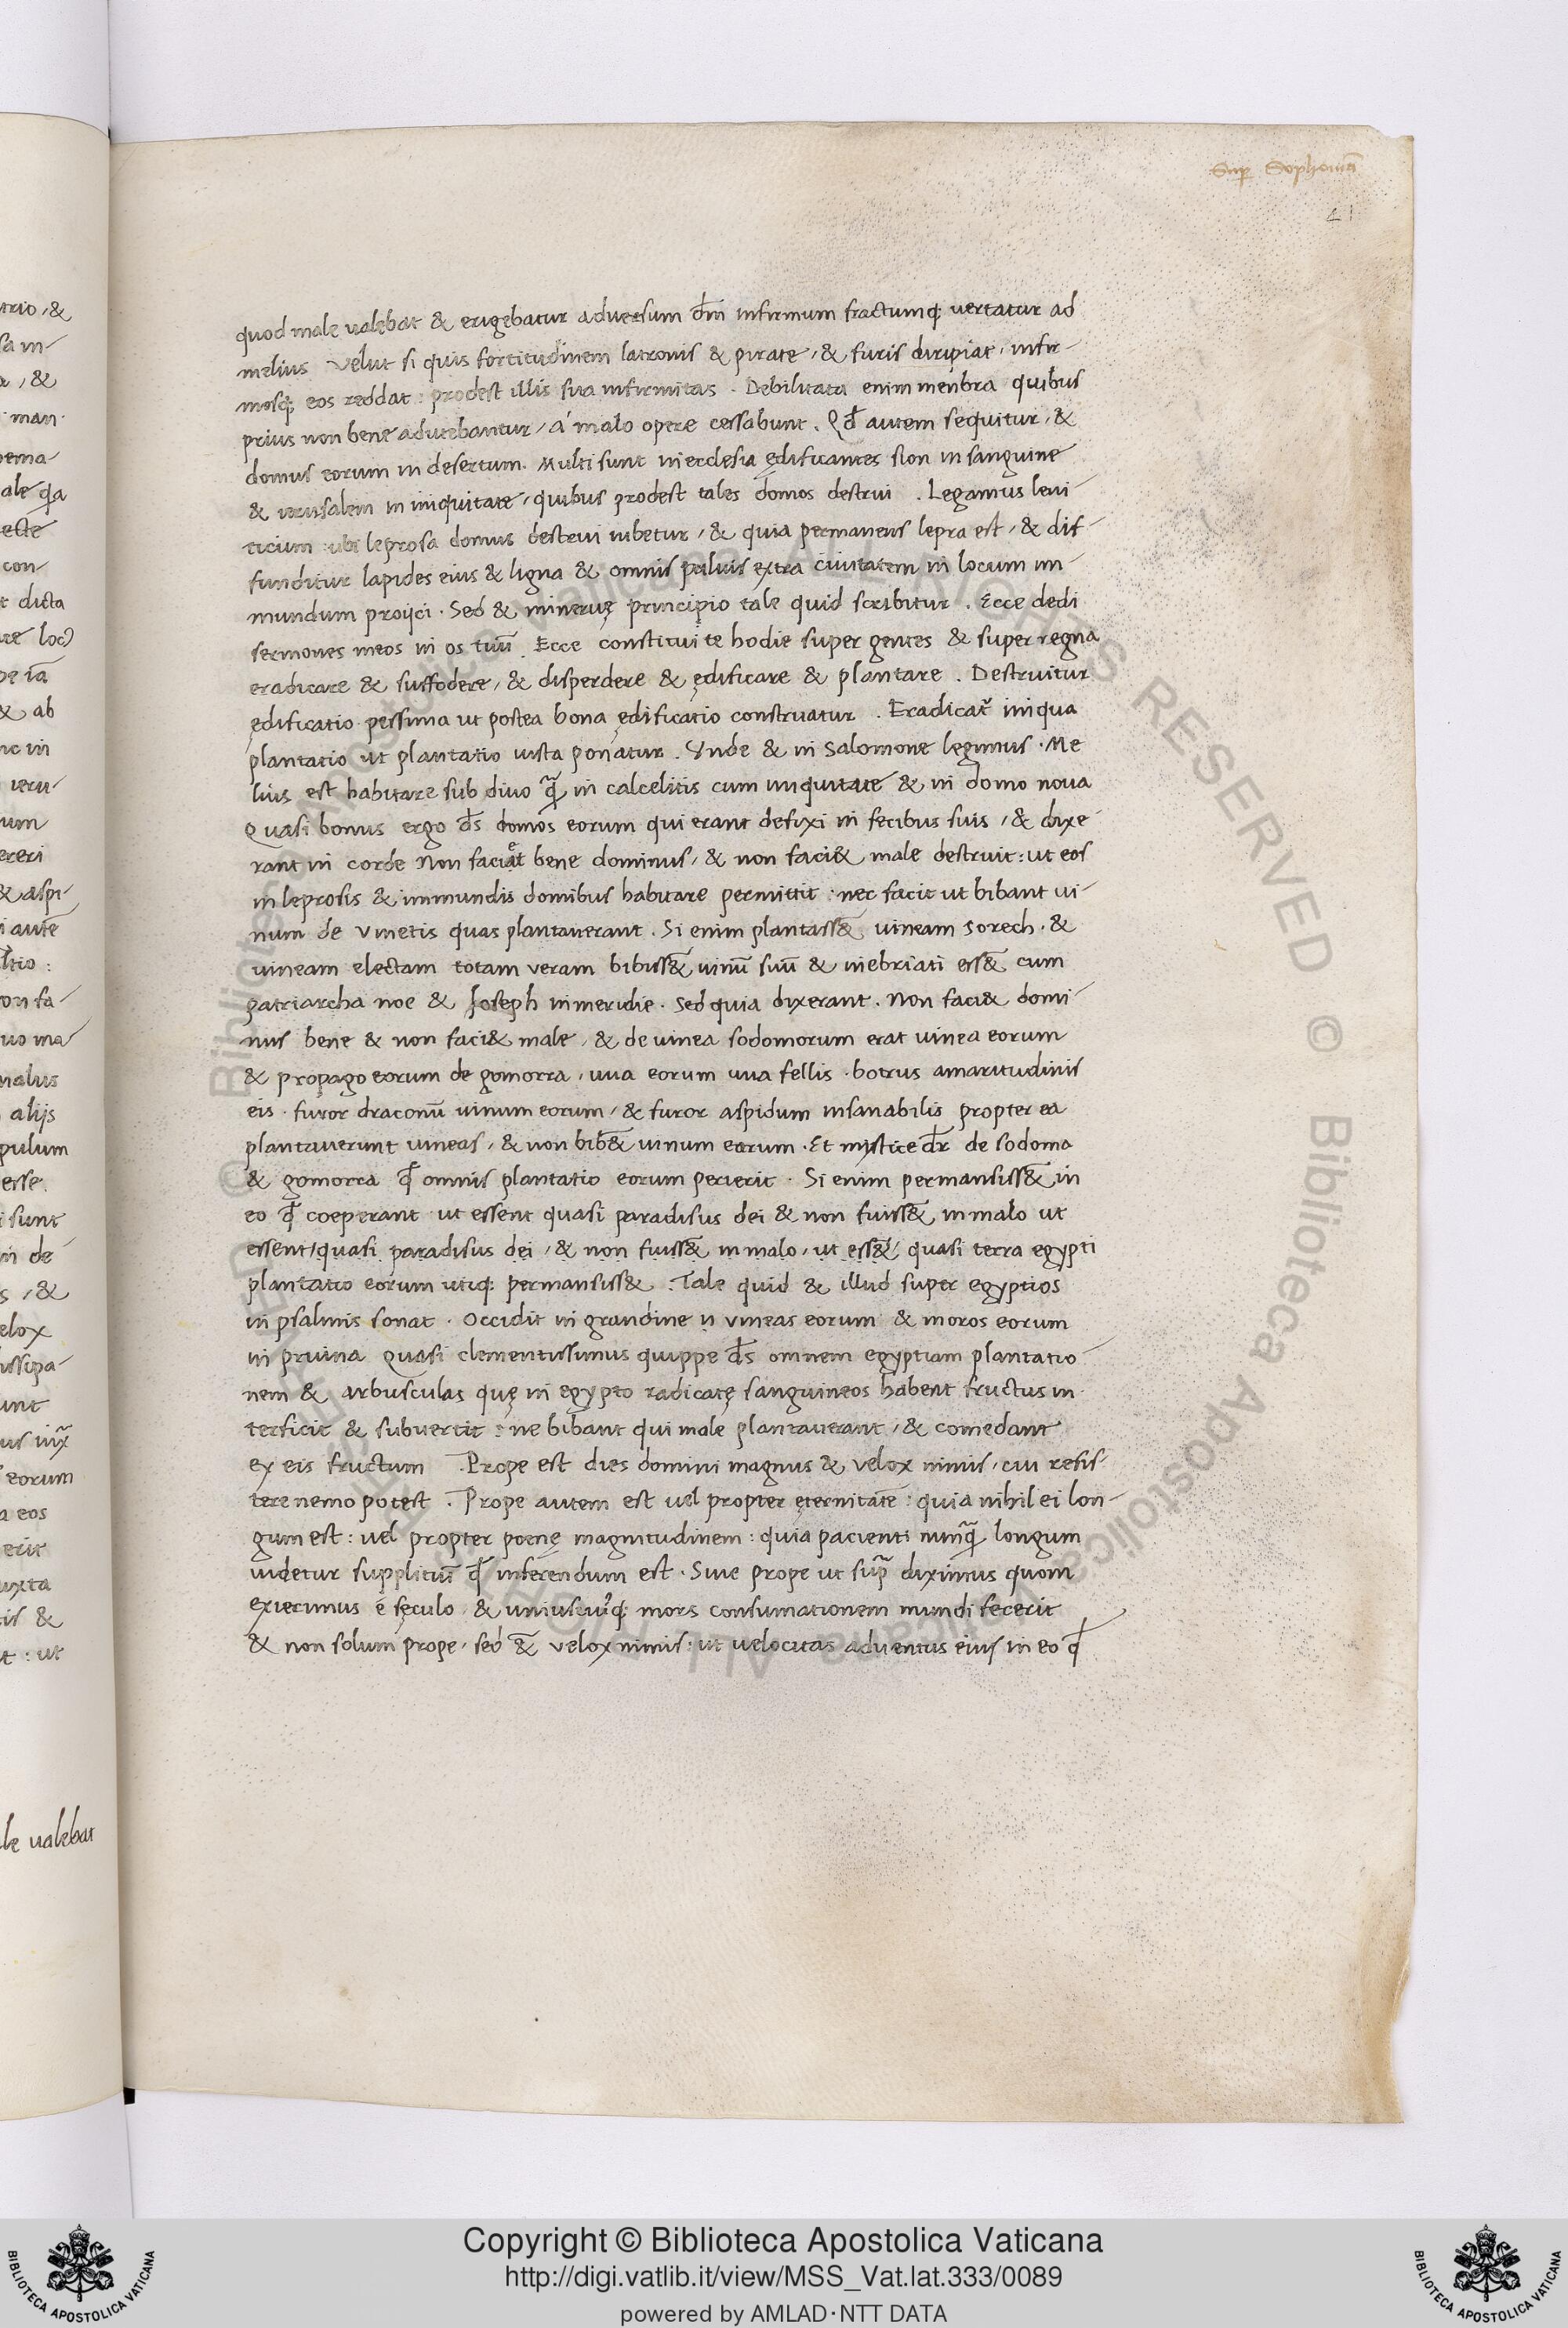 Sup Sophoniā
41
quod male ualębat & erigębatur aduersum dn̄i infirmum fractumq; vertatur ad
melius Velut si quis fortitudinem latronis & pirate, & furis diripiat, infir-
mosq; eos reddat: prodest illis sua infirmitas. Debilitata enim menbra quibus
prius non bene adutebantur, á malo opere cessabunt. Qd̄ autem sequitur, &
domus eorum in desertum. Multi sunt in ecclesia ędificantes sion in sanguine
& ierusalem in iniquitate, quibus prodest tales domos destrui. Legamus leui-
ticum ubi leprosa domus destrui iubetur, & quia permanens lepra est, & dif-
funditur lapides eius & ligna & omnis puluis extra ciuitatem in locum im-
mundum proijci. Sed & in ieremię principio tale quid scribitur. Ecce dedi
sermones meos in os tuū. Ecce constitui te hodie super gentes & super regna
eradicare & suffodere, & disperdere & ędificare & plantare. Destruitur
ędificatio pessima ut postea bona ędificatio construatur. Eradicat̄ iniqua
plantatio ut plantatio iusta ponatur. Vnde & in Salomone legimus. Me
lius est habitare sub diuo q̄ in calcelitis cum iniquitate & in domo noua
Quasi bonus ergo ds̄ domos eorum qui erant defixi in fecibus suis, & dixe-
rant in corde Non faciet bene dominus, & non faci& male destruit: ut eos
in leprosis & immundis domibus habitare permittit: nec facit ut bibant ui-
num de vinetis quas plantauerant. Si enim plantass& uineam sorech. &
uineam electam totam veram bibiss& uinū suū & inebriati ess& cum
patriarcha noe & Joseph in meridie. Sed quia dixerant. Non faci& domi-
nus bene & non faci& male, & de uinea sodomorum erat uinea eorum
& propago eorum de gomorra, uua eorum uua fellis. botrus amaritudinis
eis. furor draconū uinum eorum, & furor aspidum insanabilis propter ea
plantauerunt uineas, & non bib& uinum eorum. Et mystice dr̄ de sodoma
& gomorra q̄ omnis plantatio eorum perierit. Si enim permansiss& in
eo q̄ coeperant ut essent quasi paradisus dei & non fuiss& in malo ut
essent, quasi paradisus dei, & non fuiss& in malo, ut ess& quasi terra egypti
plantatio eorum utiq; permansiss&. Tale quid & illud super egyptios
in psalmis sonat. Occidit in grandine n vineas eorum & moros eorum
in pruina Quasi clementissimus quippe ds̄ omnem egyptiam plantatio-
nem & arbusculas quę in egypto radicatę sanguineos habent fructus in-
terficit & subuertit: ne bibant qui male plantauerant, & comedant
ex eis fructum. Prope est dies domini magnus & velox nimis, cui resis-
tere nemo potest. Prope autem est uel propter ęternitatē: quia nihil ei lon-
gum est: uel propter poenę magnitudinem: quia pacienti nunq̄ longum
uidetur supplitiū q̄ inferendum est. Siue prope ut sup̄ diximus quom
exierimus é sęculo & uniuscuiq; mors consumationem mundi fecerit
& non solum prope, sed & velox nimis: ut uelocitas aduentus eius in eo q̄